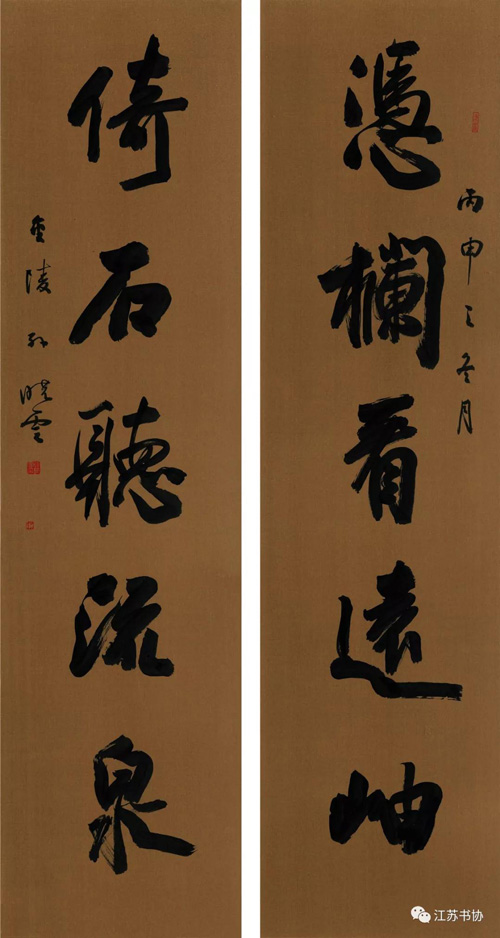 丙申之冬月
憑欄看遠岫
倚石聽流泉
金陵孫曉雲
江苏书协